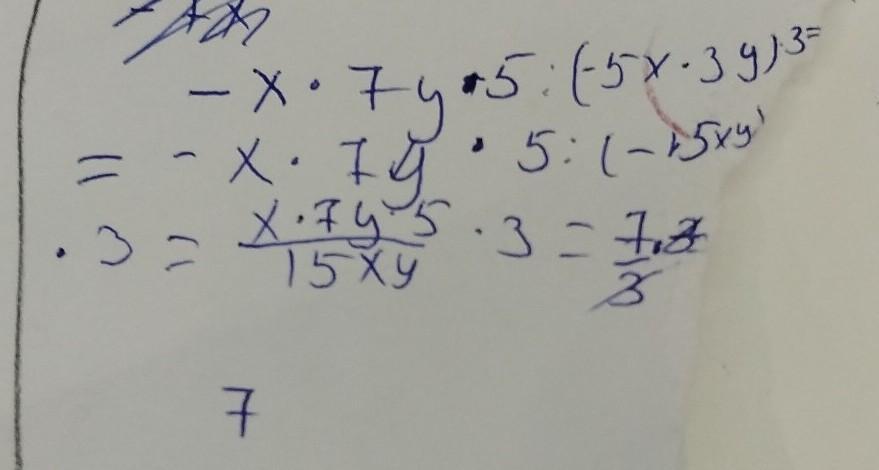 - x · 7y · 5 : (-5x · 3y) · 3 =
= - x · 7y · 5 : (-15xy)
· 3 = \frac{x · 7y · 5}{15xy} · 3 = \frac{7 · 3}{3}
7